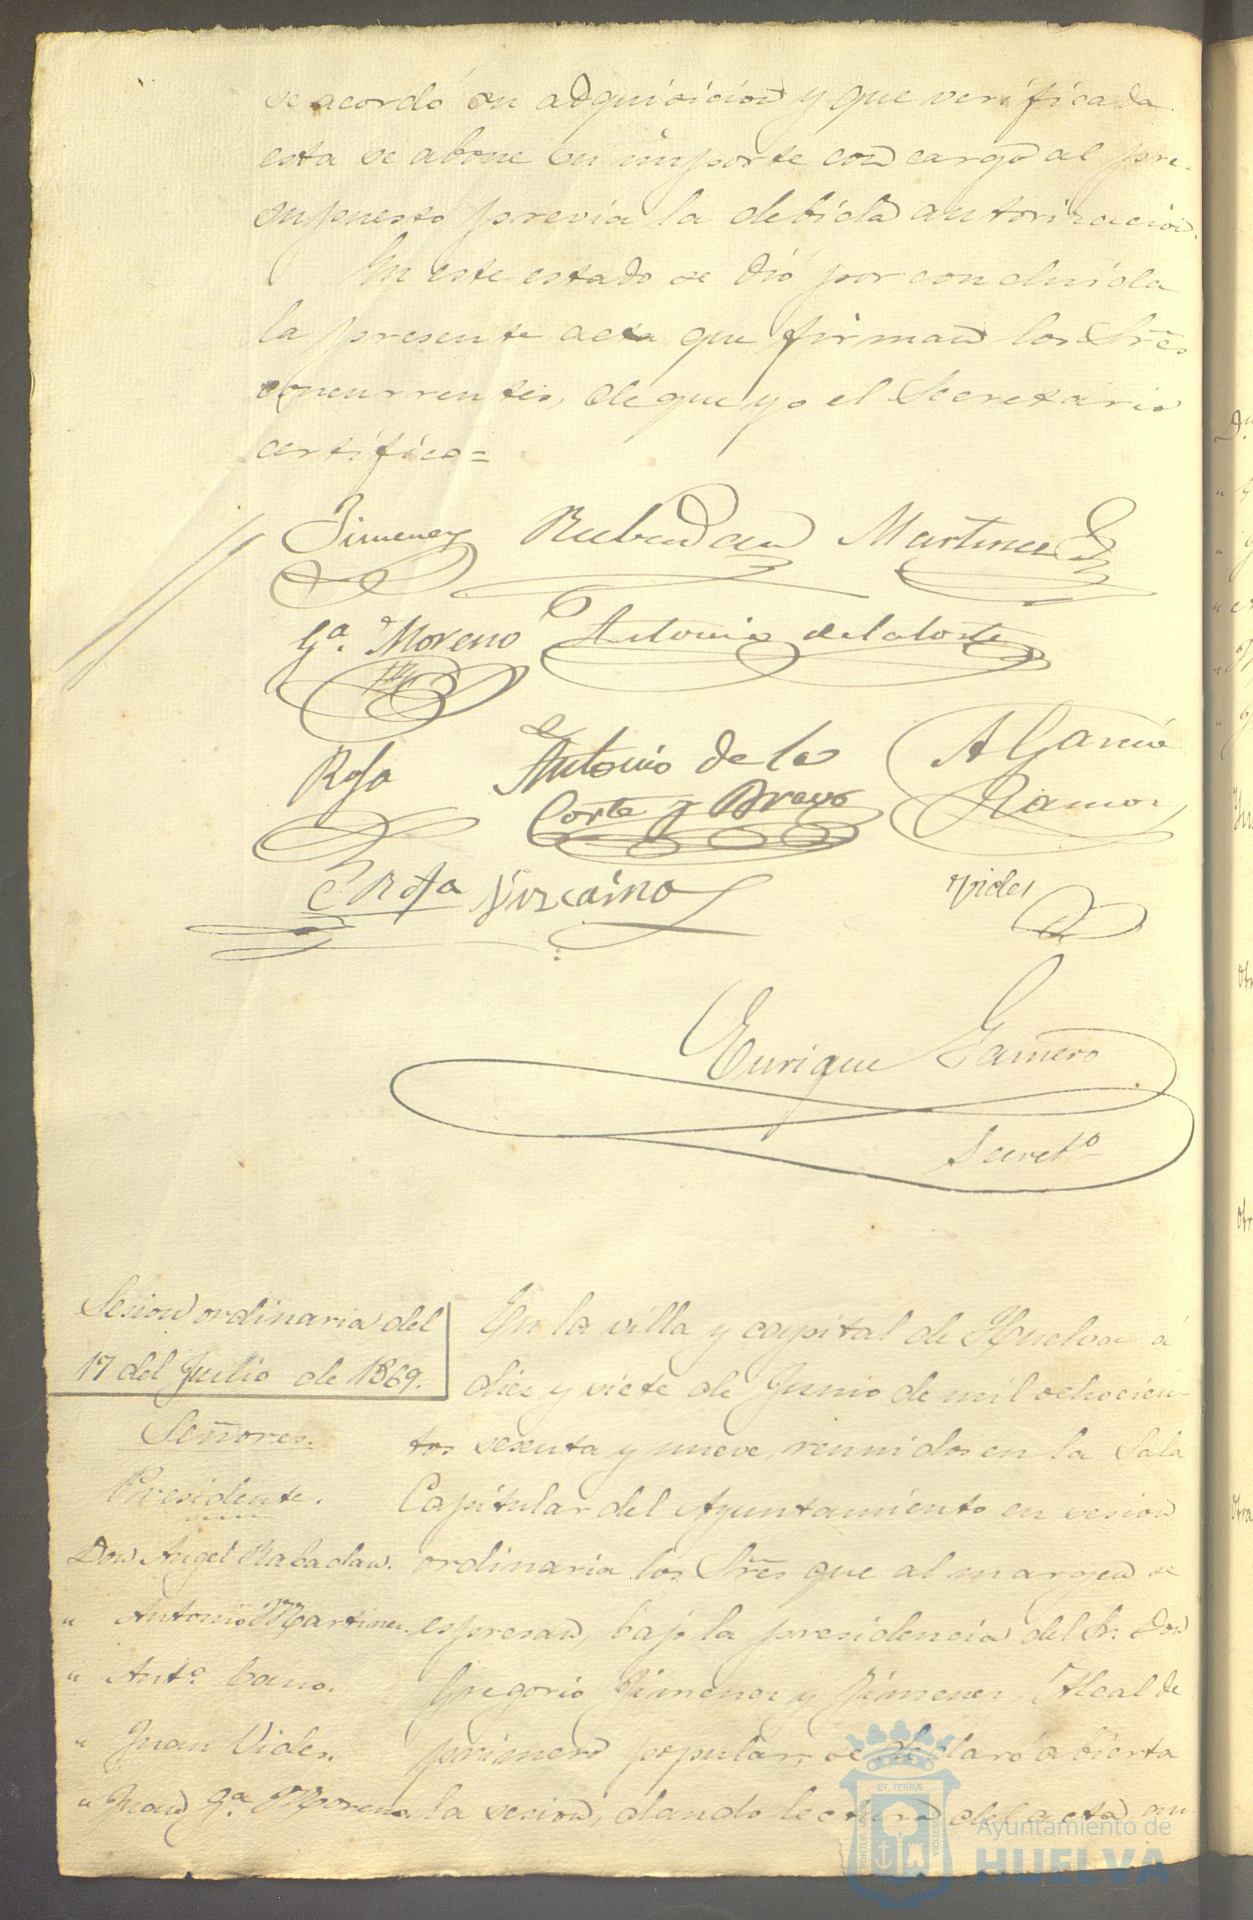 se acordó su adquisicion y que verificada
esta se abone su importe con cargo al pre-
supuesto previa la debida autorizacion.
En este estado se dió por concluida
la presente acta que firman los Sres
concurrentes, de que yo el Secretario
certifico=
Jimenez Rabadan Martinez
Ga. Moreno Antonio de la Corte
Rofa Antonio de la
Corte y Bravo
A Garcia
Ramos
C. Rofa Vizcaino Vides
Enrique Gamero
Secreto
Sesion ordinaria del
17 del Junio de 1869.
Señores.
Presidente.
Don Angel Rabadan.
" Antonio Martinez.
" Anto. Cano.
" Juan Vides.
" Juan Ga. Moreno
En la villa y capital de Huelva á
diez y siete de Junio de mil ochocien-
tos sesenta y nueve, reunidos en la Sala
Capitular del Ayuntamiento en sesion
ordinaria los Sres que al margen se
espresan, bajo la presidencia del Sr. Don
Gregorio Jimenez y Jimenez, Alcalde
primero popular, se declaró abierta
la sesion, dando lectura del acta an
Ayuntamiento de
HUELVA